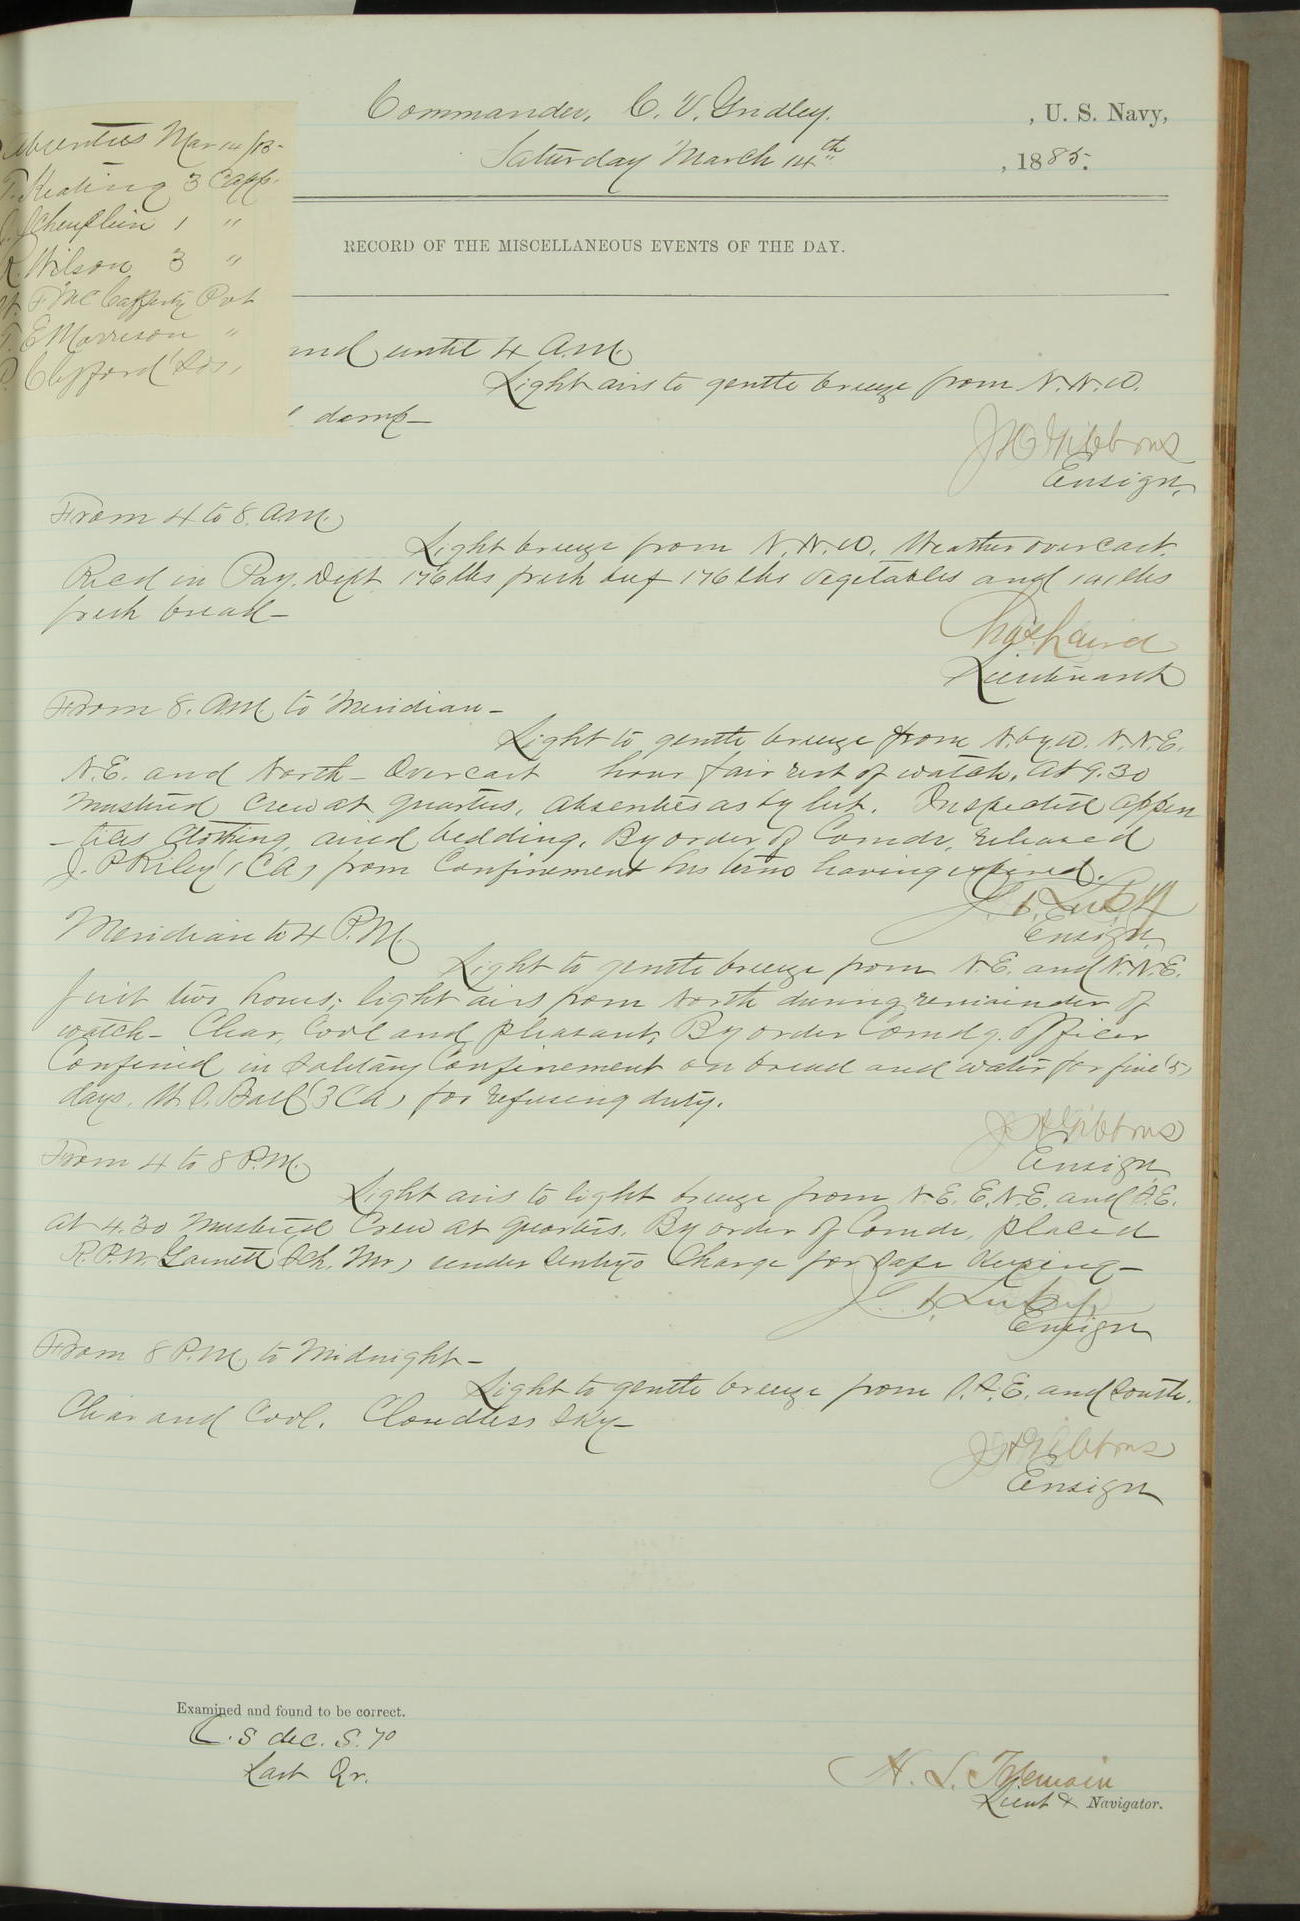 Commander, C. V. Gridley. , U. S. Navy,
Saturday March 14th , 1885.
RECORD OF THE MISCELLANEOUS EVENTS OF THE DAY.
Absentees Mar 14/85-
T. Keating 3 Capp.
Scheuflein 1 "
R. Wilson 3 "
F McCafferty Pvt
E Morrison "
Clifford
and until 4 A.M.
Light airs to gentle breeze from N.N.W.
damp-
J H Gibbons
Ensign,
From 4 to 8. A.M.
Light breeze from N.N.W. Weather overcast.
Recd in Pay. Dept 176 lbs fresh beef 176 lbs vegetables and 141 lbs
fresh bread-
Chas. Laird
Lieutenant
From 8. A.M. to Meridian-
Light to gentle breeze from N. by W. N.N.E.
N.E. and North- Overcast hour fair rest of watch. At 9.30
mustered crew at quarters, absentees as by list. Inspected appen
-tices clothing, aired bedding. By order of Comdr. released
J. P Riley (1 CA) from Confinement his time having expired.
Ensign
Meridian to 4 P.M.
Light to gentle breeze from N.E. and N.N.E.
first two hours; light airs from North during remainder of
watch- Clear, Cool and pleasant, By order Comdg. Officer
Confined in Solitary Confinement on bread and water for five (5)
days. W. C. Ball (3 CA) for refusing duty.
J H Gibbons
Ensign
From 4 to 8 P.M.
Light airs to light breeze from N.E. E.N.E. and S.E.
At 4.30 mustered Crew at quarters. By order of Comdr. placed
R.P.W. Garnett (Sch. Mr) under Sentrys Charge for safe keeping-
Ensign
From 8 P.M. to Midnight-
Light to gentle breeze from S.S.E. and South.
Clear and Cool. Cloudless sky-
J H Gibbons
Ensign
Examined and found to be correct.
C.S dec. S. 7°
Last Qr.
H. L. Tremain
Lieut & Navigator.